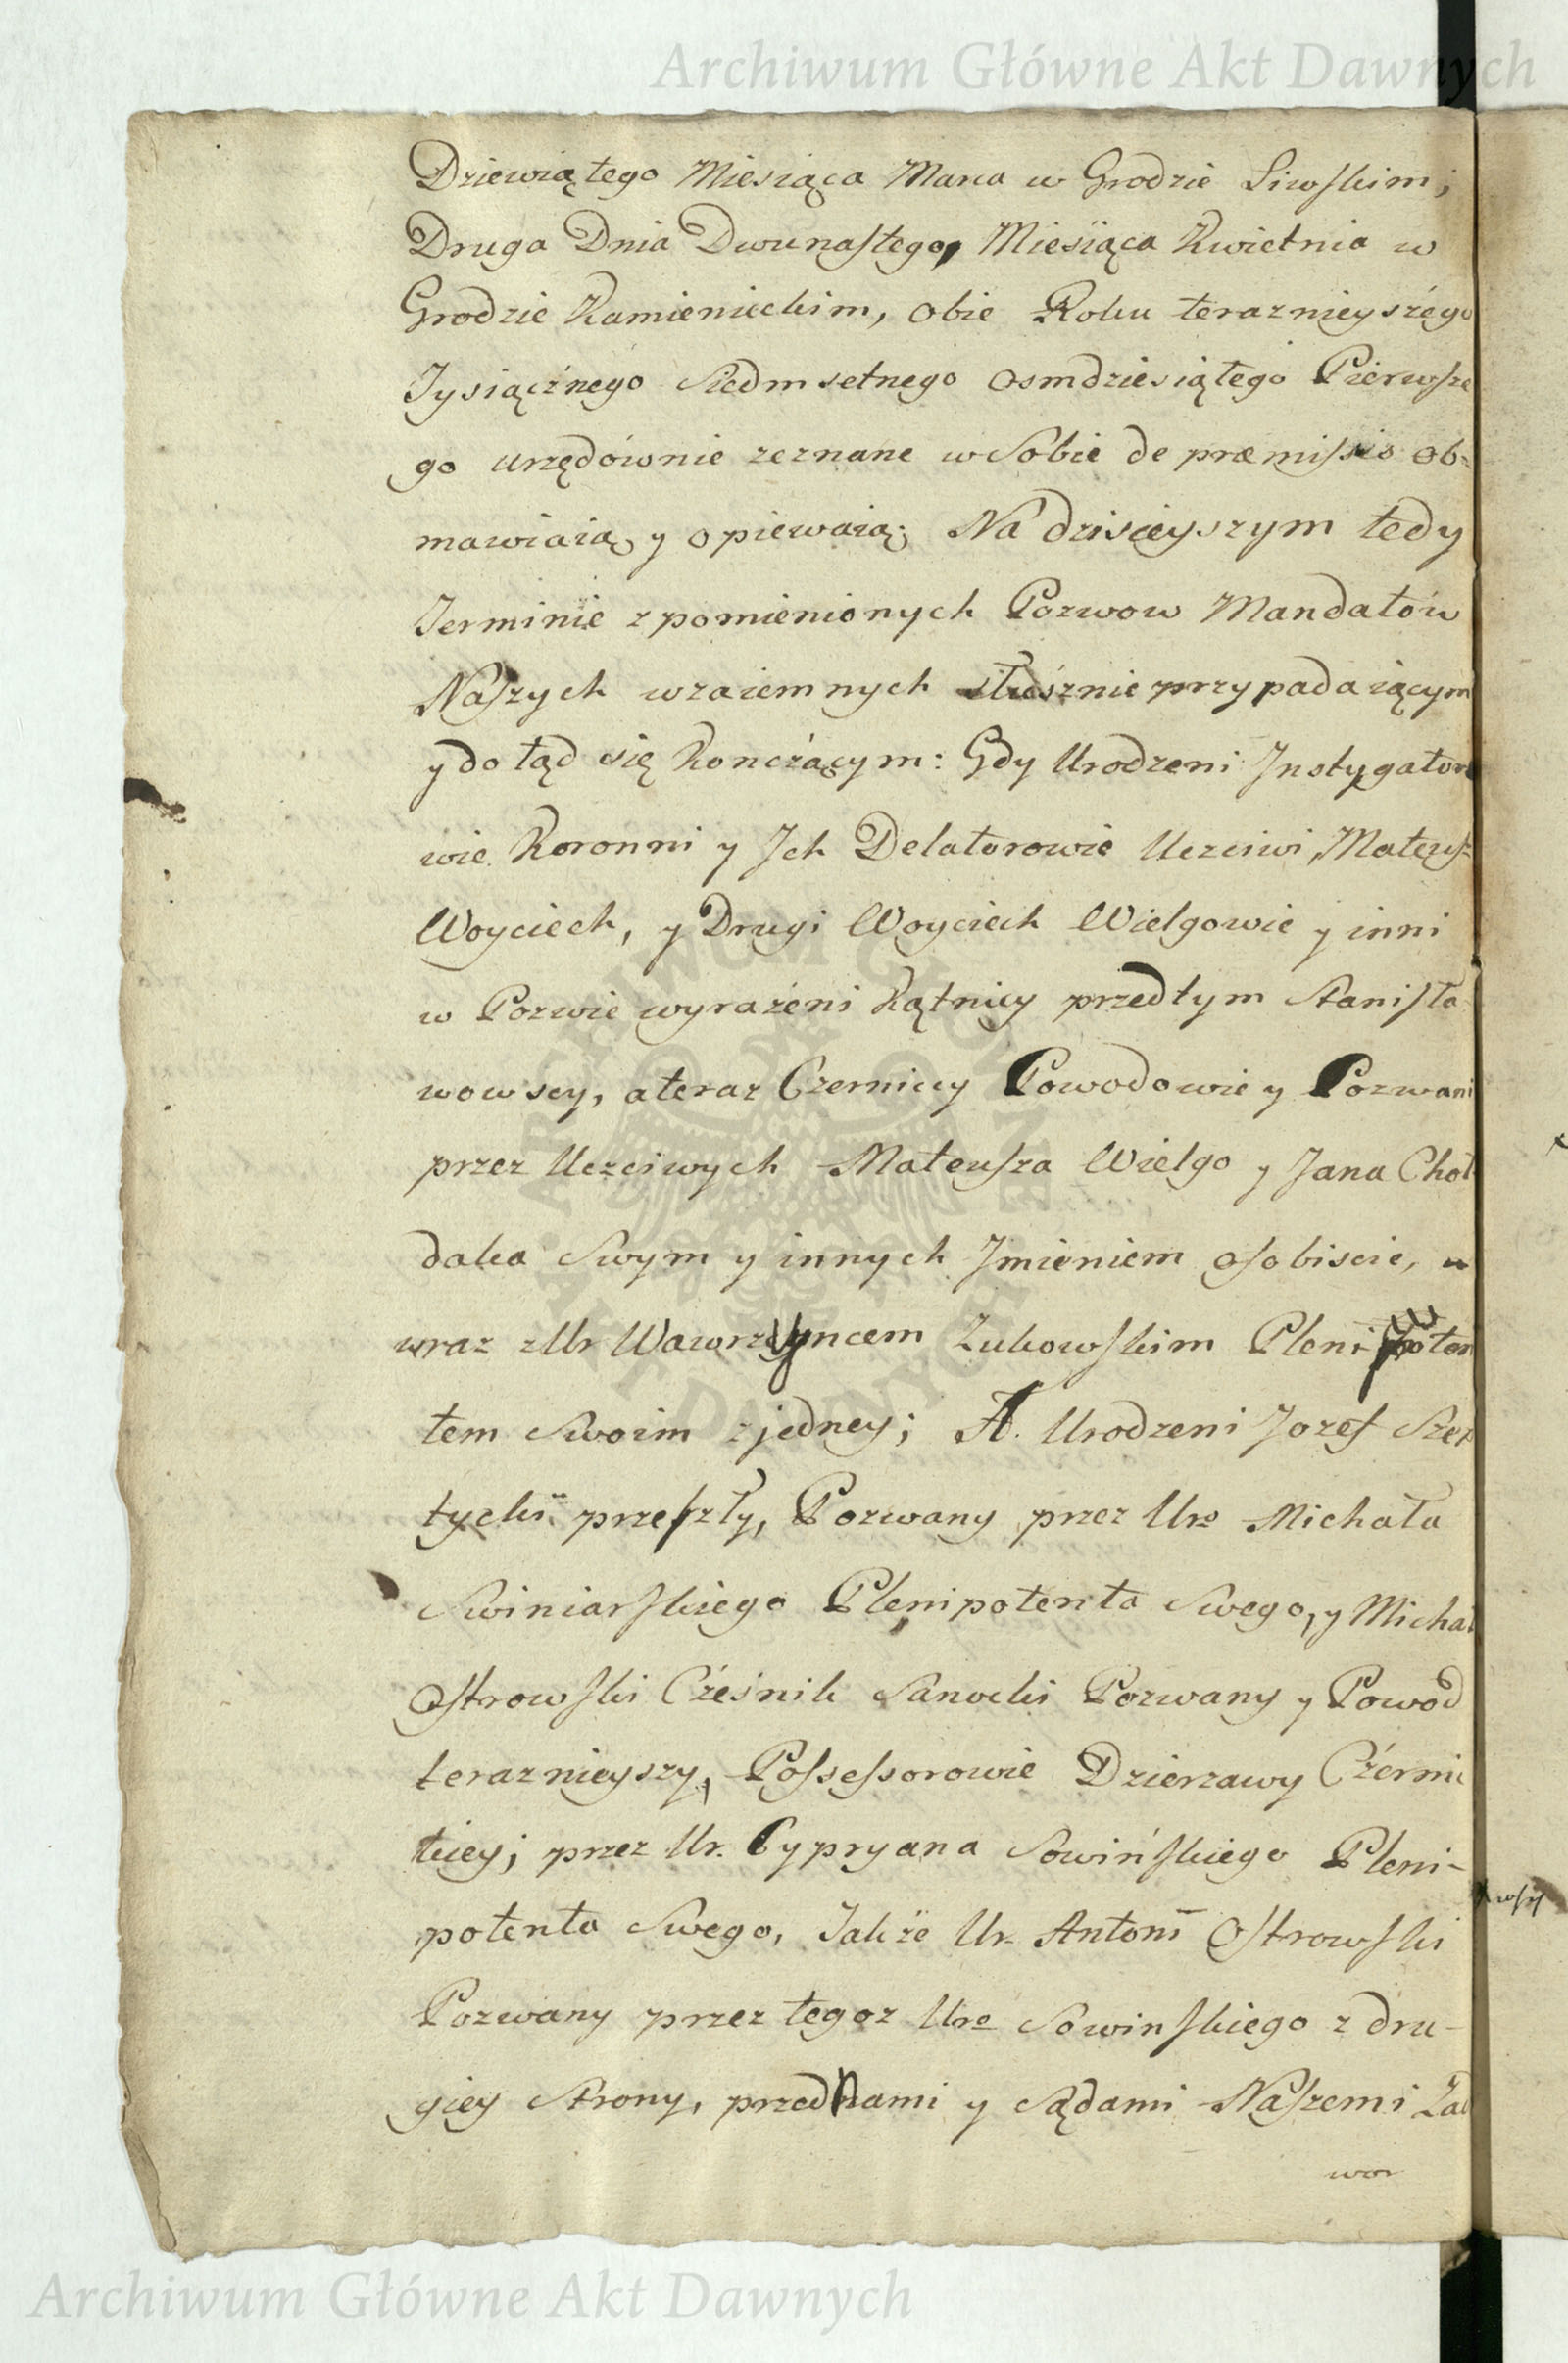 Archiwum Główne Akt Dawnych
Dziewiątego Miesiąca Marca w Grodzie Liwskim;
Druga Dnia Dwunastego, Miesiąca Kwietnia w
Grodzie Kamienieckim, obie Roku teraznieyszégo
Tysiącźnego Siedmsetnego Osmdziesiątego Pierwsze
go urzędównie zeznane w Sobie de præmissis ob=
mawiaią y opiewaią; Na dzisieyszym tedy
Terminie z pomienionych Pozwow Mandatów
Naszych wzaiemnych słusznie przypadaiącym
y do tąd się Konczącym: Gdy Urodzeni Instygatoro
wie Koronni y Ich Delatorowie Uczciwi, Mateusz
Woyciech, y Drugi Woyciech Wielgowie y inni
w Pozwie wyrażéni Kątnicy przedtym Stanisła
wowscy, a teraz Czerniccy Powodowie y Pozwani
przez Uczciwych Mateusza Wielgo y Jana Choł
daka Swym y innych Imieniem osobiscie, w
wraz z Ur Wawrzyncem Zukowskim Plenipoten
tem Swoim z jedney; A. Urodzeni Jozef Szep
tycki przeszły, Pozwany przez Uro Michała
Swiniarskiego Plenipotenta Swego, y Michał
Ostrowski Cześnik Sanocki Pozwany y Powod
teraznieyszy, Possessorowie Dzierzawy Czérni
kiey; przez Ur. Cypryana Sowińskiego Pleni-
potenta Swego, Jakże Ur. Antoni Ostrowski
Pozwany przez tegoz Uro Sowinskiego z dru-
giey Strony, przed Nami y Sądami Naszemi Zad
wor
Archiwum Główne Akt Dawnych